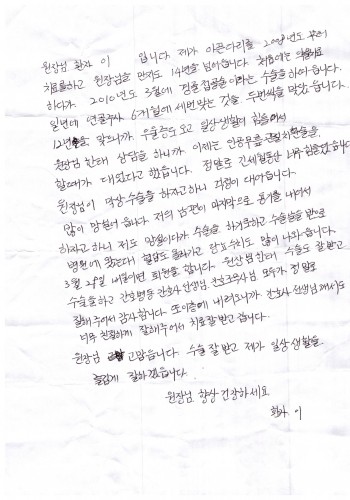 원장님 환자 이 입니다 제가 아픈다리를 2008년도 부터
치료를하고 원장님을 만지도 14년을 넘어습니다. 처음에는 약물치료
하다가 2010년도 3월에 관절 접골술이라는 수술을 하여습니다.
일년에 연골주사 6개월에 세번맞는 것을 두번씩을 맞았습니다.
12년을 맞드니까 수술은도 오고 일상생활이 힘들어서
원장님 한태 상담을 하니까 이제는 인공무릎 관절치환술을
할때가 대왔다고 했습니다. 정말로 긴세월동안 너무 힘들었습니다
원장님이 막상 수술을 하자고하니 걱정이 대아습니다.
많이 망설여습니다. 저의 남편이 마지막으로 용기를 내어서
하자고 하니 저도 안될이다가 수술을 하겨로하고 수술날을 받으로
병원에 왔는대 혈압도 올라가고 당뇨수치도 많이 나와습니다.
3월 29일 내일이면 퇴원을 합니다. 원장님한태 수술도 잘받고
수술을하고 간호병동 간호사 선생님 간호조무사님 모두가 정말로
잘해주어서 감사합니다. 또 이층에 내려오니까 간호사 선생님께서도
너무 친절하게 잘해주어서 치료잘받고 갑니다.
원장님 고맙습니다. 수술 잘 받고 제가 일상 생활을
즐겁게 잘하겠습니다.
원장님 항상 건강하세요
환자 이